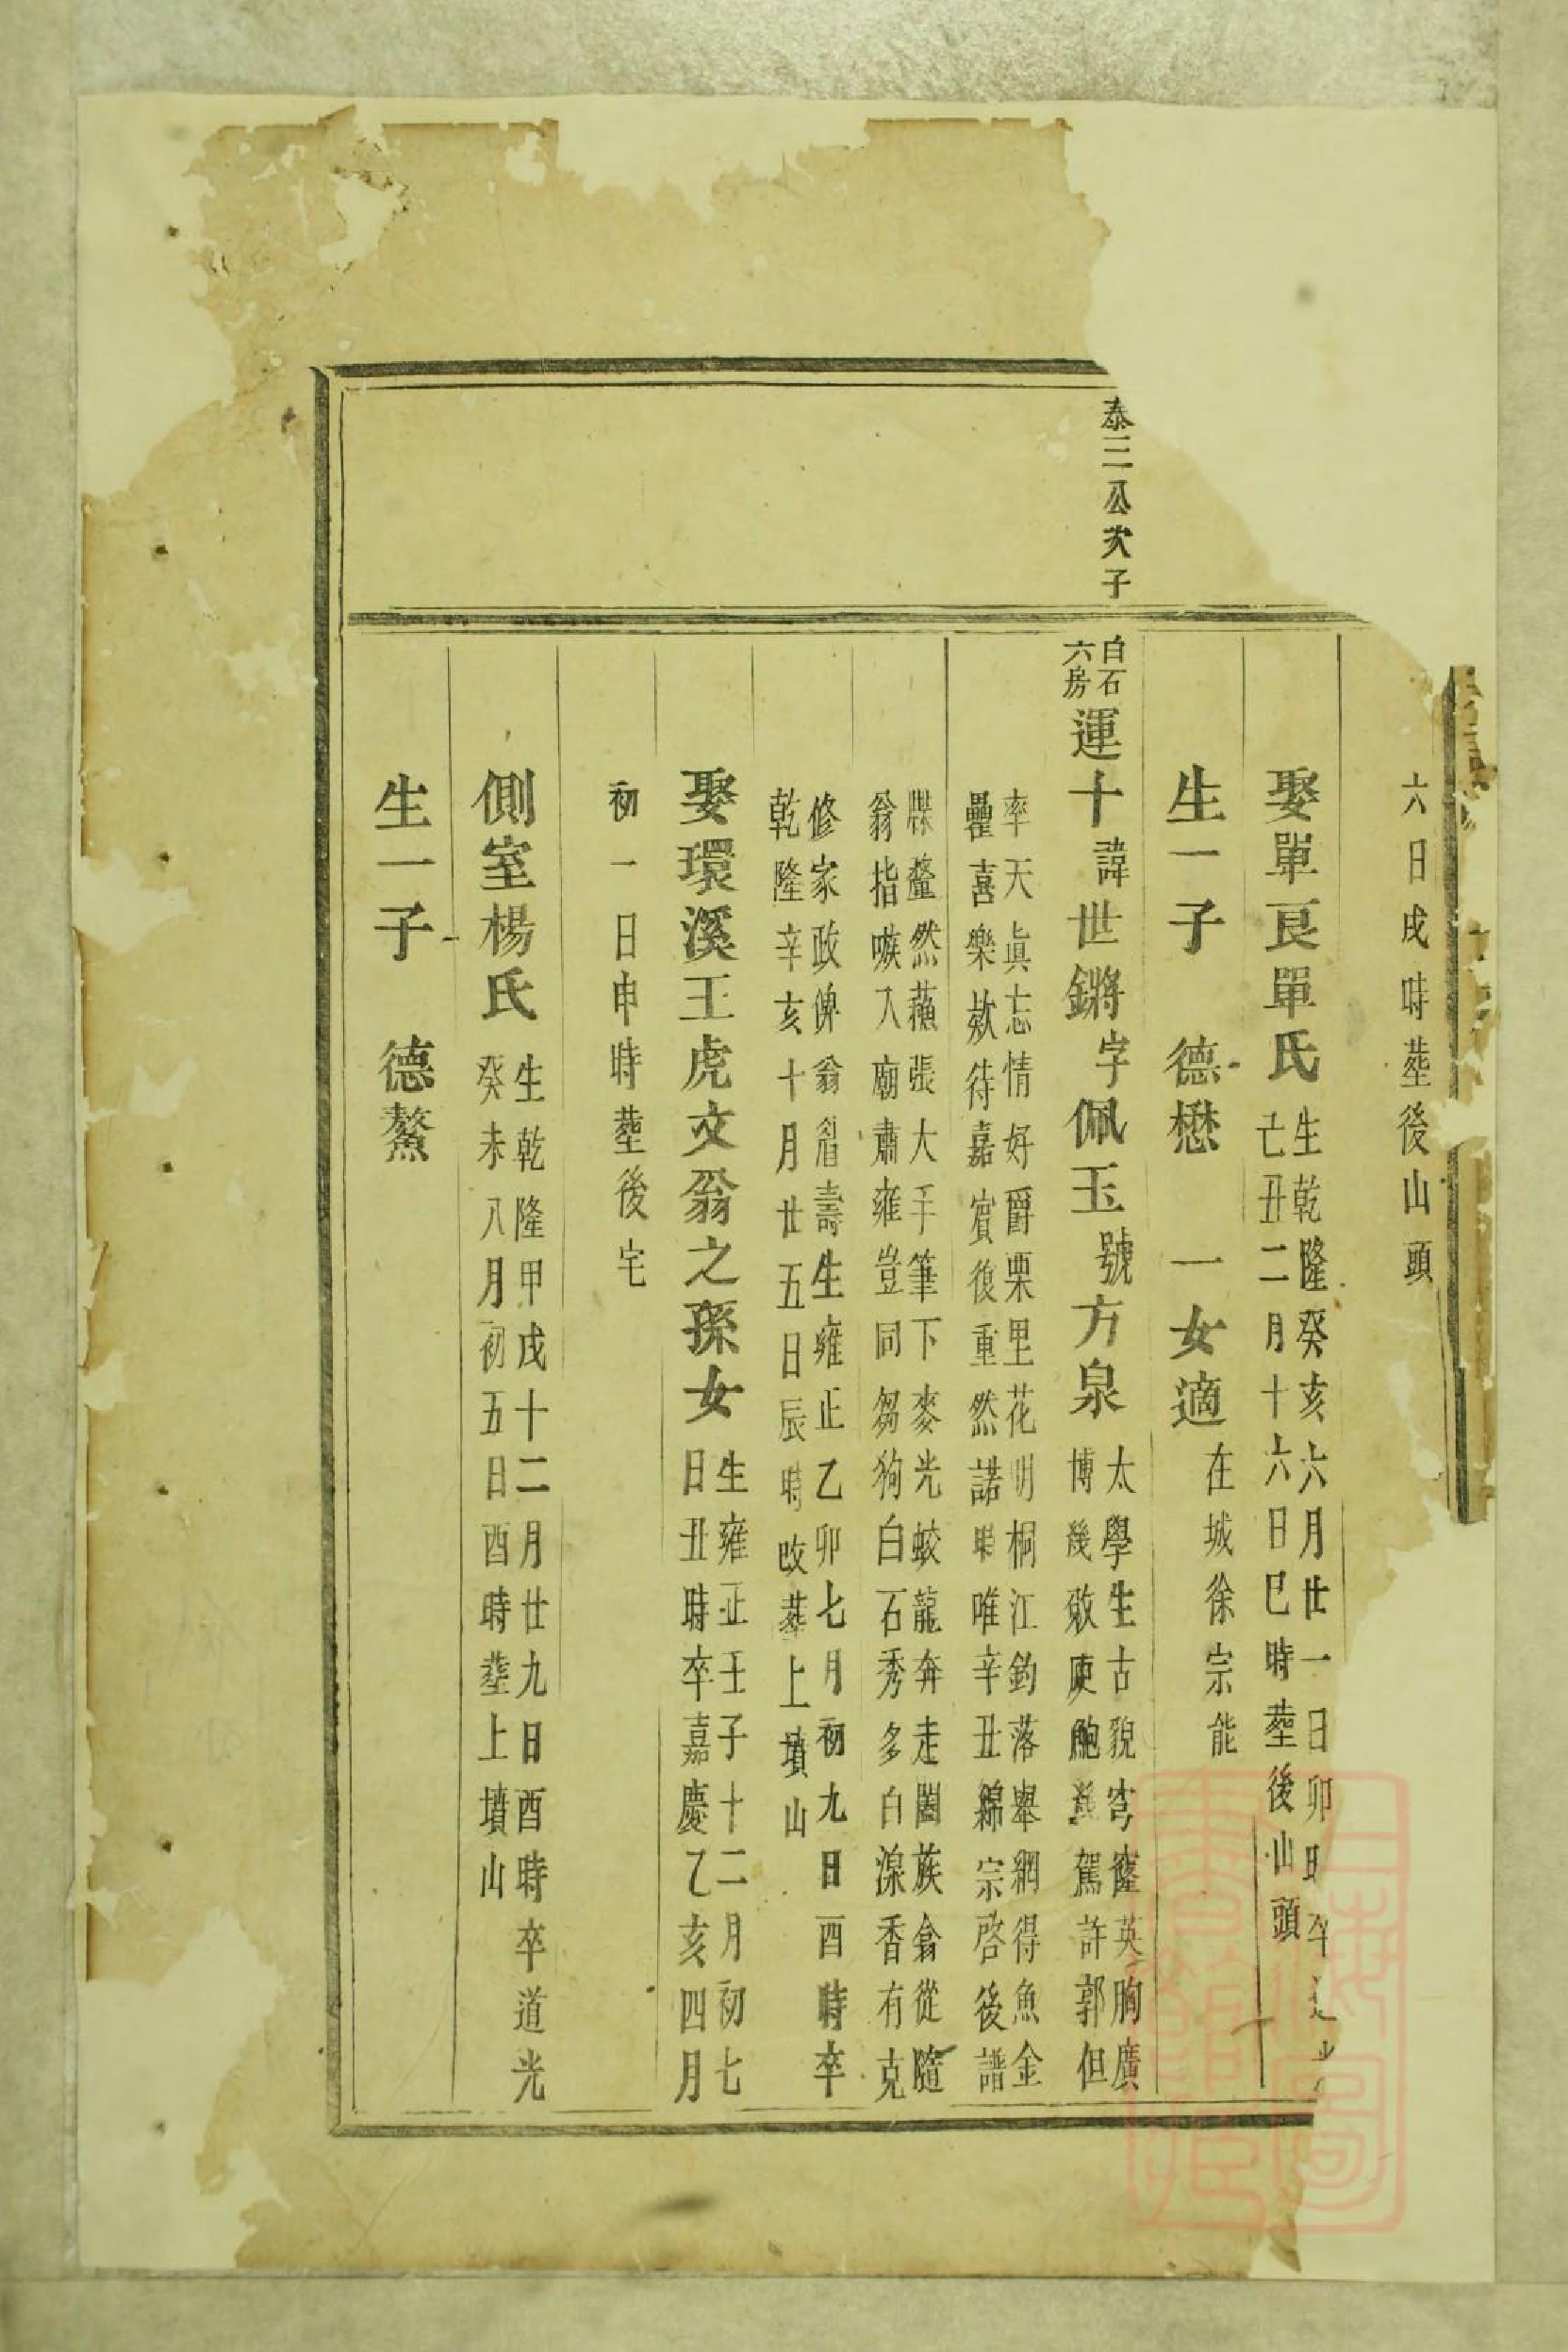 六日戌時塟後山頭
娶單良單氏
生乾隆癸亥六月廿一日卯時卒
亡丑二月十六日巳時塟後山頭
生一子 德懋 一女適在城徐宗能
泰三公次子
白石
六房
運十諱世鏘字佩玉號方泉
太學生古貌穹窿英胸廣
博幾敢庾鮑駕許郭但
率天眞忘情好爵栗里花明桐江釣落舉網得魚金
罍喜樂欵待嘉賓復重然諾時唯辛丑綿宗啓後譜
牒釐然蘓張大手筆下麥光蛟龍奔走闔族翕從隨
翁指嗾入廟肅雍豈同芻狗白石秀多白湶香有克
修家政俾翁眉壽生雍正乙卯七月初九日酉時卒
乾隆辛亥十月廿五日辰時改葬上墳山
娶環溪王虎文翁之孫女
生雍正壬子十二月初七
日丑時卒嘉慶乙亥四月
初一日申時塟後宅
側室楊氏
生乾隆甲戌十二月廿九日酉時卒道光
癸未八月初五日酉時塟上墳山
生一子 德鰲